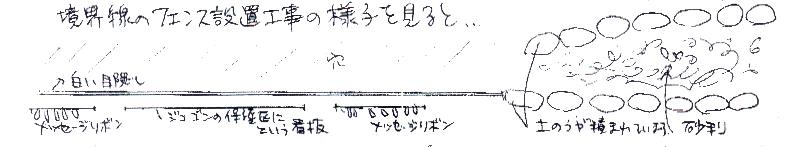 境界線のフェンス設置工事の様子を見ると..
穴
↗白い目隠し
メッセージリボン
ジュゴンの保護区に
という看板
メッセージリボン
土のうが積まれている
砂利